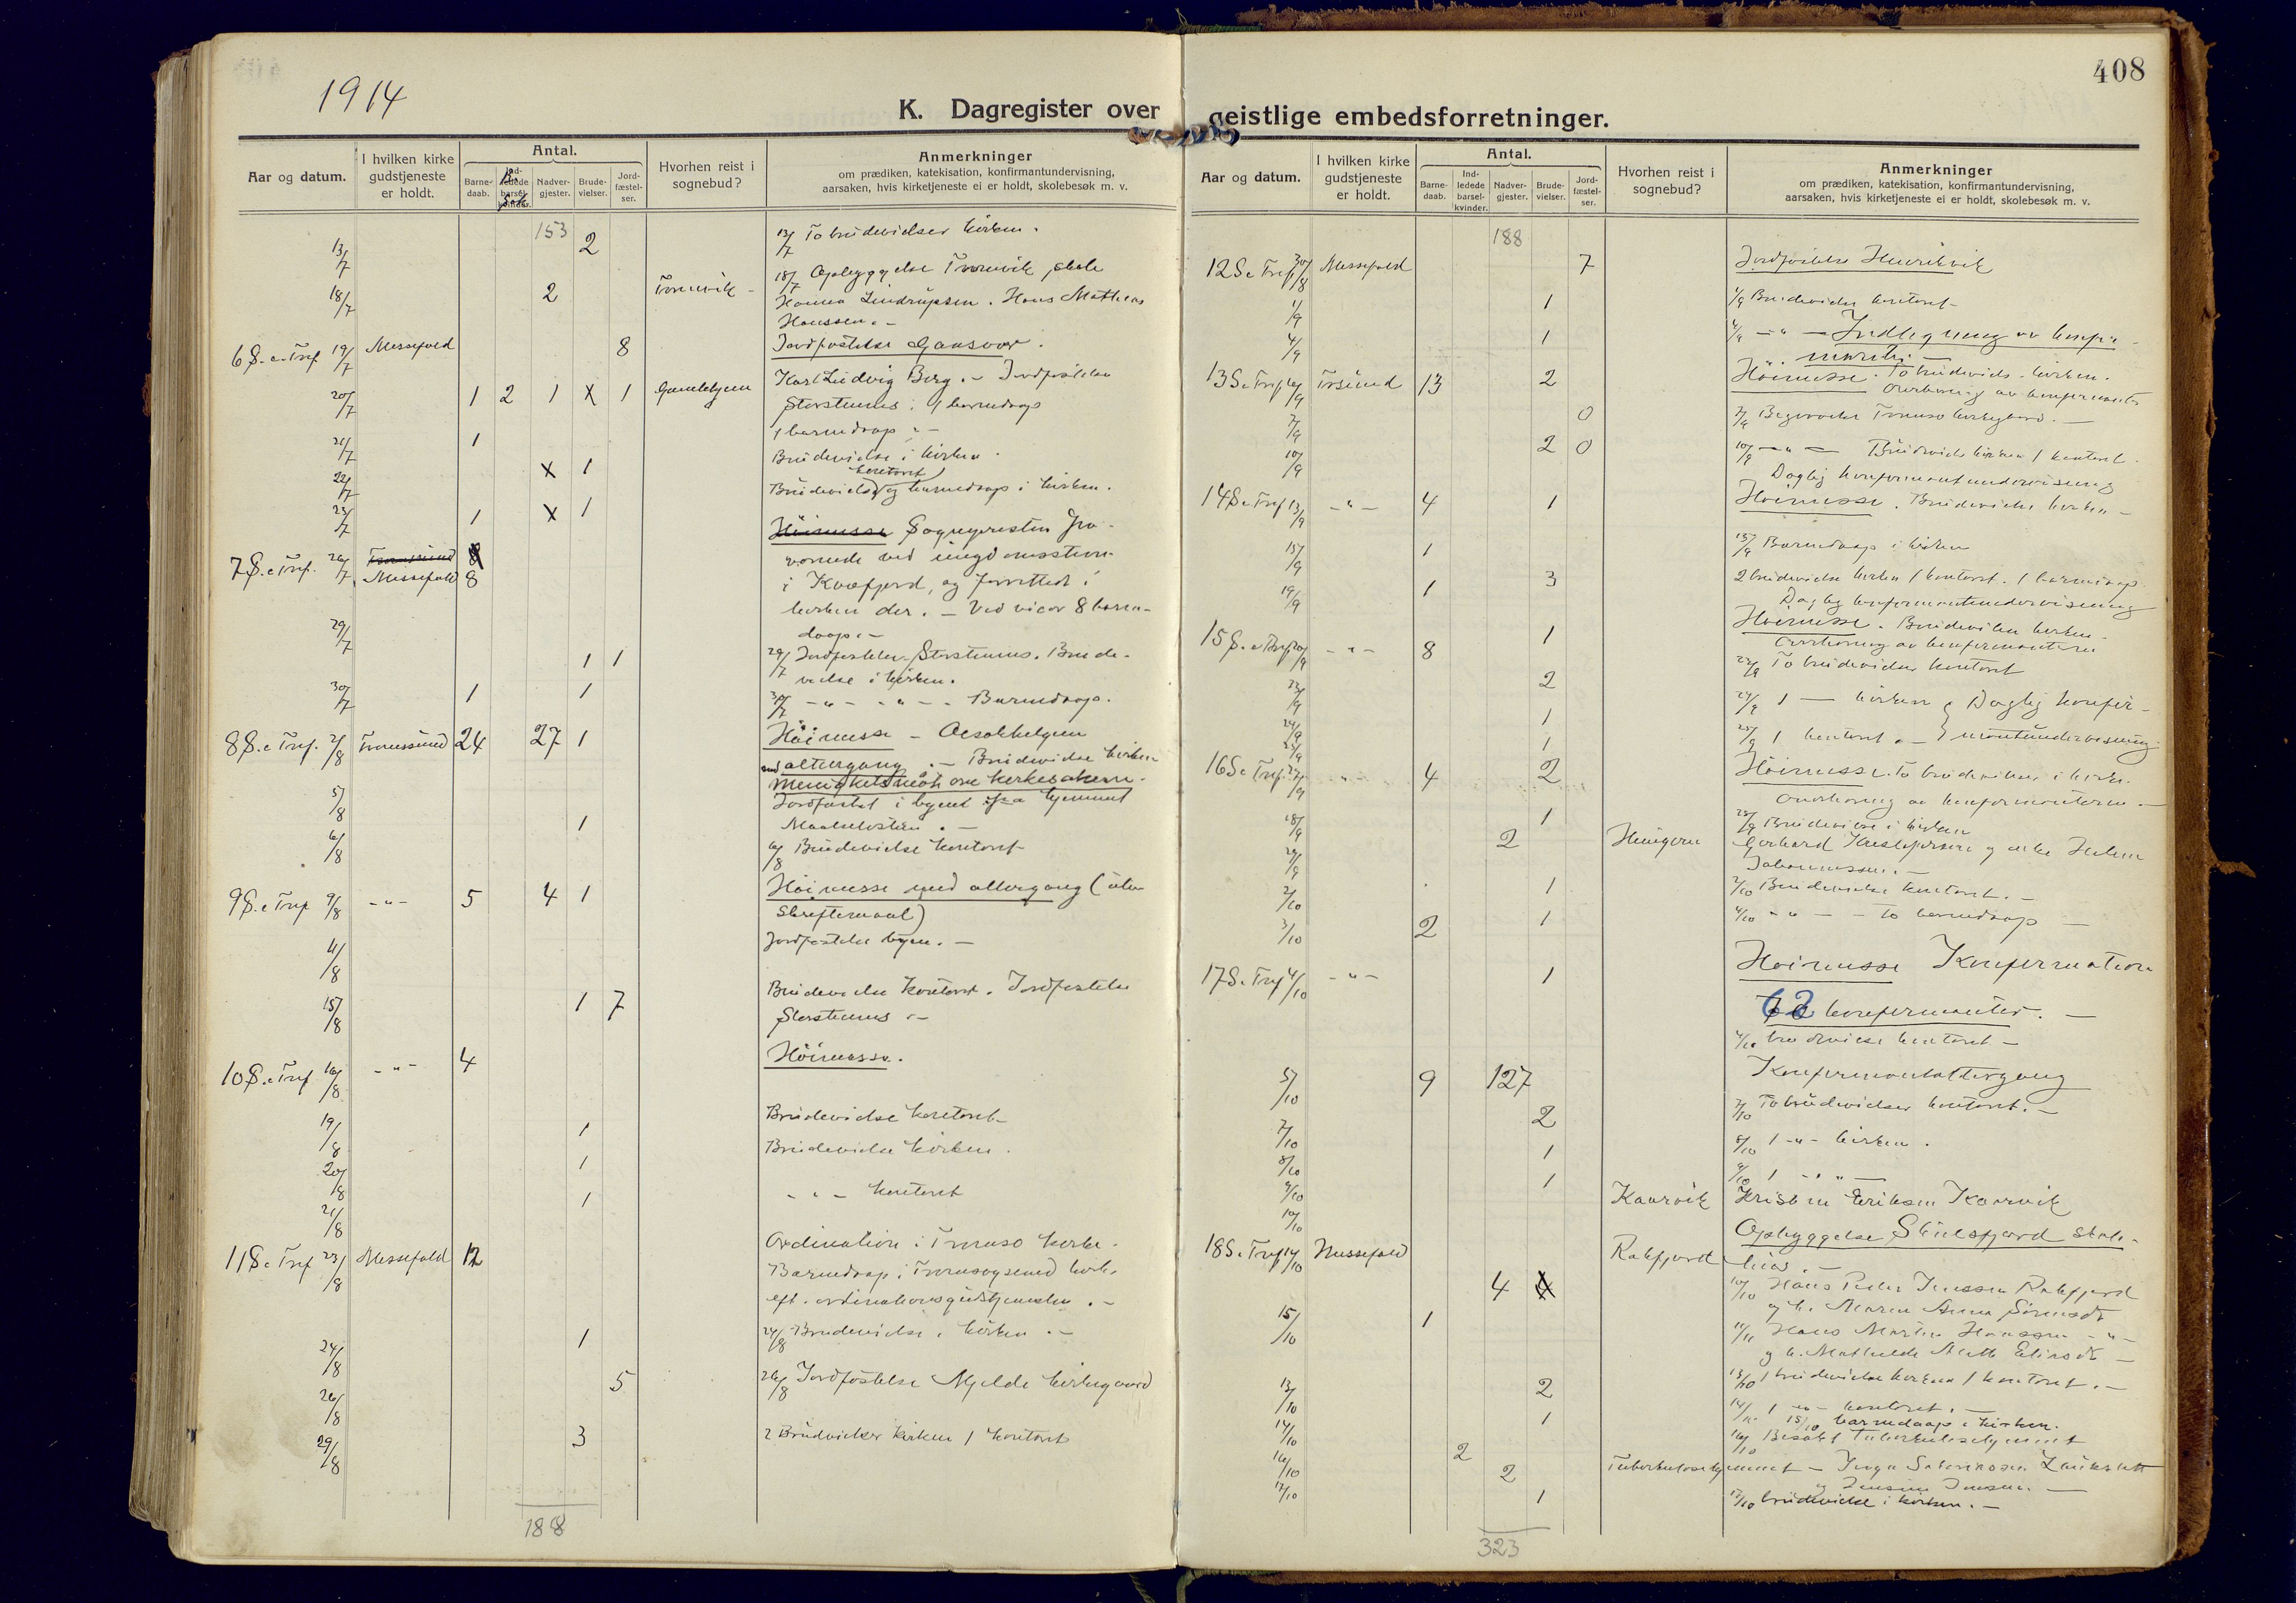 1914
408
K. Dagregister over geistlige embedsforretninger.
Aar og datum.
I hvilken kirke gudstjeneste er holdt.
Antal.
Barne-daab.
Ind-ledede barsel-kvinder.
Nadver-gjester.
Brude-vielser.
Jord-fæstel-ser.
Hvorhen reist i sognebud?
Anmerkninger
om prædiken, katekisation, konfirmantundervisning,
aarsaken, hvis kirketjeneste ei er holdt, skolebesøk m. v.
153
13/7 2 13/7 To brudevielser kirken.
18/7 2 18/7 Opbyggelse skole
Hanna Hans Mathias
Hanssen. -
6 S. e. Tref 19/7 Messefald 8 Jordfæstelse
20/7 1 2 1 X 1 Karl Ludvig Berg. - Jordfæstelse
Storstennes. 1 barnedaap
21/7 1 1 barnedaap
22/7 X 1 Brudevielse i kirken.
kontoret
23/7 1 X 1 Brudevielse og barnedaap i kirken.
7 S. e. Tref. 26/7 Tromsøsund 8 Høimesse Sognepresten fra-
Messefald 8 værende ved ungdomsstevne
i Kvæfjord, og forrettet i
kirken der. - Ved vicar 8 barne-
daap. -
29/7 1 1 29/7 Jordfæstelse Storstennes. Brude-
vielse i kirken.
30/7 1 1 30/7 - " - - " - - Barnedaap.
8 S. e. Tref. 2/8 Tromsøsund 24 27 1 Høimesse - Olsokhelgen
med altergang. - Brudevielse kirken
Menighetsmøte om kirkesakerne.
5/8 Jordfæstet i byen fra hjemmet
6/8 1 6/8 Brudevielse kontoret
9 S. e. Tref 9/8 - " - 5 4 1 Høimesse med altergang (uten
Skriftemaal)
11/8 Jordfæstelse byen. -
15/8 1 7 Brudevielse kontoret. Jordfæstelse
Storstennes. -
10 S. e. Tref 16/8 - " - 4 Høimesse.
19/8 1 Brudevielse kontoret
20/8 1 Brudevielse kirken.
21/8 1 - " - kontoret
11 S. e. Tref 23/8 Messefald 12 Ordination i Tromsø kirke.
Barnedaap i Tromsøysund kirke
eft. ordinationsgudstjenesten. -
24/8 1 24/8 Brudevielse i kirken. -
26/8 5 26/8 Jordfæstelse Mjelde kirkegaard
29/8 3 2 Brudevielser kirken 1 kontoret
188
Aar og datum.
I hvilken kirke gudstjeneste er holdt.
Antal.
Barne-daab.
Ind-ledede barsel-kvinder.
Nadver-gjester.
Brude-vielser.
Jord-fæstel-ser.
Hvorhen reist i sognebud?
Anmerkninger
om prædiken, katekisation, konfirmantundervisning,
aarsaken, hvis kirketjeneste ei er holdt, skolebesøk m. v.
188
12 S. e. Tref 30/8 Messefald 7 Jordfæstelse Henrikvik
1/9 1 1/9 Brudevielse kontoret
4/9 1 4/9 - " - Indlegning av konfir-
manter -
13 S. e. Tref 6/9 Tr.sund 13 2 Høimesse. To brudeviels. kirken.
Overhøring av konfirmanter
7/9 0 7/9 Begravelse Tromsø kirkegaard. -
10/9 2 0 10/9 - " - Brudevielse kirken 1 kontoret.
Daglig konfirmantundervisning
14 S. e. Tref 13/9 - " - 4 1 Høimesse. Brudevielse kirken -
15/9 1 15/9 Barnedaap i kirken
19/9 1 3 2 brudevielse kirken 1 kontoret. 1 barnedaap.
Daglig konfirmantundervisning
15 S. e. Tref 20/9 - " - 8 1 Høimesse. Brudevielse kirken.
Overhøring av konfirmanterne
2 To brudevielser kontoret
24/9 1 24/9 1 - kirken Daglig konfir-
25/9 1 25/9 1 kontoret. - mantundervisning.
16 S. e. Tref. 27/9 - " - 4 2 Høimesse. To brudevielser i kirken.
Overhøring av konfirmanterne. -
28/9 1 28/9 Brudevielse i kirken
29/9 2 Gerhard Kristoffersen
2/10 1 2/10 Brudevielse kontoret. -
3/10 2 1 - " - - To barnedaap -
17 S. e. Tref 4/10 - " - 1 Høimesse Konfirmation
62 konfirmanter. -
4/10 brudevielse kontoret -
5/10 9 127 Konfirmantaltergang
7/10 2 7/10 To brudevielser kontoret. -
8/10 1 8/10 1 - " - kirken.
9/10 1 9/10 1 - " -
10/10 Kaarvik Eriksen Kaarvik
Opbyggelse Skulsfjord skole-
18 S. e. Tref 11/10 Messefald Rakfjord hus. -
4 X 10/10 Hans Peder Jenssen Rakfjord
og h. Maren Anna
15/10 1 Hans Martin Hanssen - " -
13/10 2 13/10 1 brudevielse kirken 1 kontoret. -
14/10 1 14/10 1 - " - kontoret. -
15/10 barnedaap i kirken.
16/10 2 16/10 Besøkt Tuberkulosehjemmet
2 Tuberkulosehjemmet -
17/10 1 17/10 brudevielse i kirken. -
323